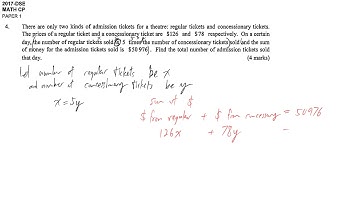 2017-DSE
MATH CP
PAPER 1
4. There are only two kinds of admission tickets for a theatre: regular tickets and concessionary tickets.
The prices of a regular ticket and a concessionary ticket are $126 and $78 respectively. On a certain
day, the number of regular tickets sold is 5 times the number of concessionary tickets sold and the sum
of money for the tickets sold is $50 976. Find the total number of admission tickets sold
that day. (4 marks)
Let number of regular tickets be x
and number of concessionary tickets be y
x = 5y
sum of $
$ from regular + $ from concessionary = 50976
126x + 78y =